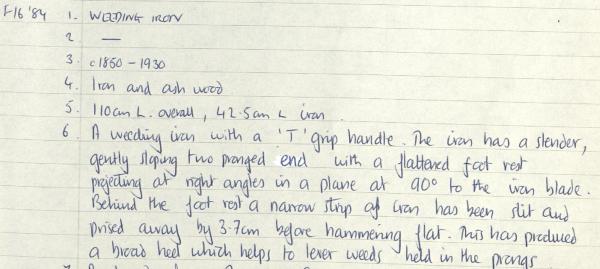 F16 '84 1. WEEDING IRON
2 —
3. c1850 - 1930
4. Iron and ash wood
5. 110cm L. overall, 42.5cm L iron.
6. A weeding iron with a 'T' grip handle. The iron has a slender,
gently sloping two pronged end with a flattened foot rest
projecting at right angles in a plane at 90° to the iron blade.
Behind the foot rest a narrow strip of iron has been slit and
prised away by 3.7cm before hammering flat. This has produced
a broad heel which helps to lever weeds held in the prongs.